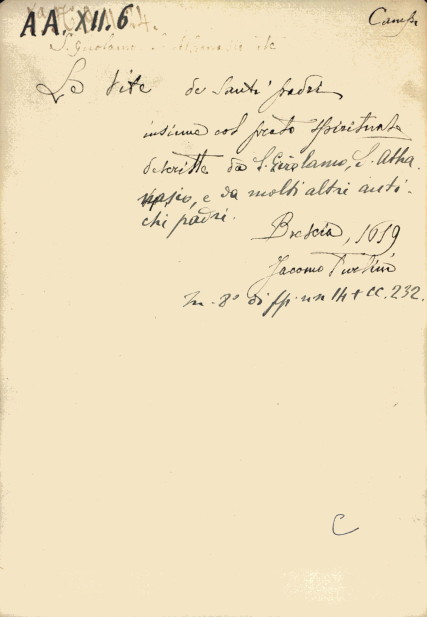 AA. XII. 6
Camp.
S. Girolamo
Le Vite de Santi padri
insieme col prato spirituale
descritte da S. Girolamo, S. Atha
nasio, e da molti altri anti-
chi padri.
Brescia, 1619
Jacomo Turlini
In-8° di ff. nn 14 + cc. 232.
C